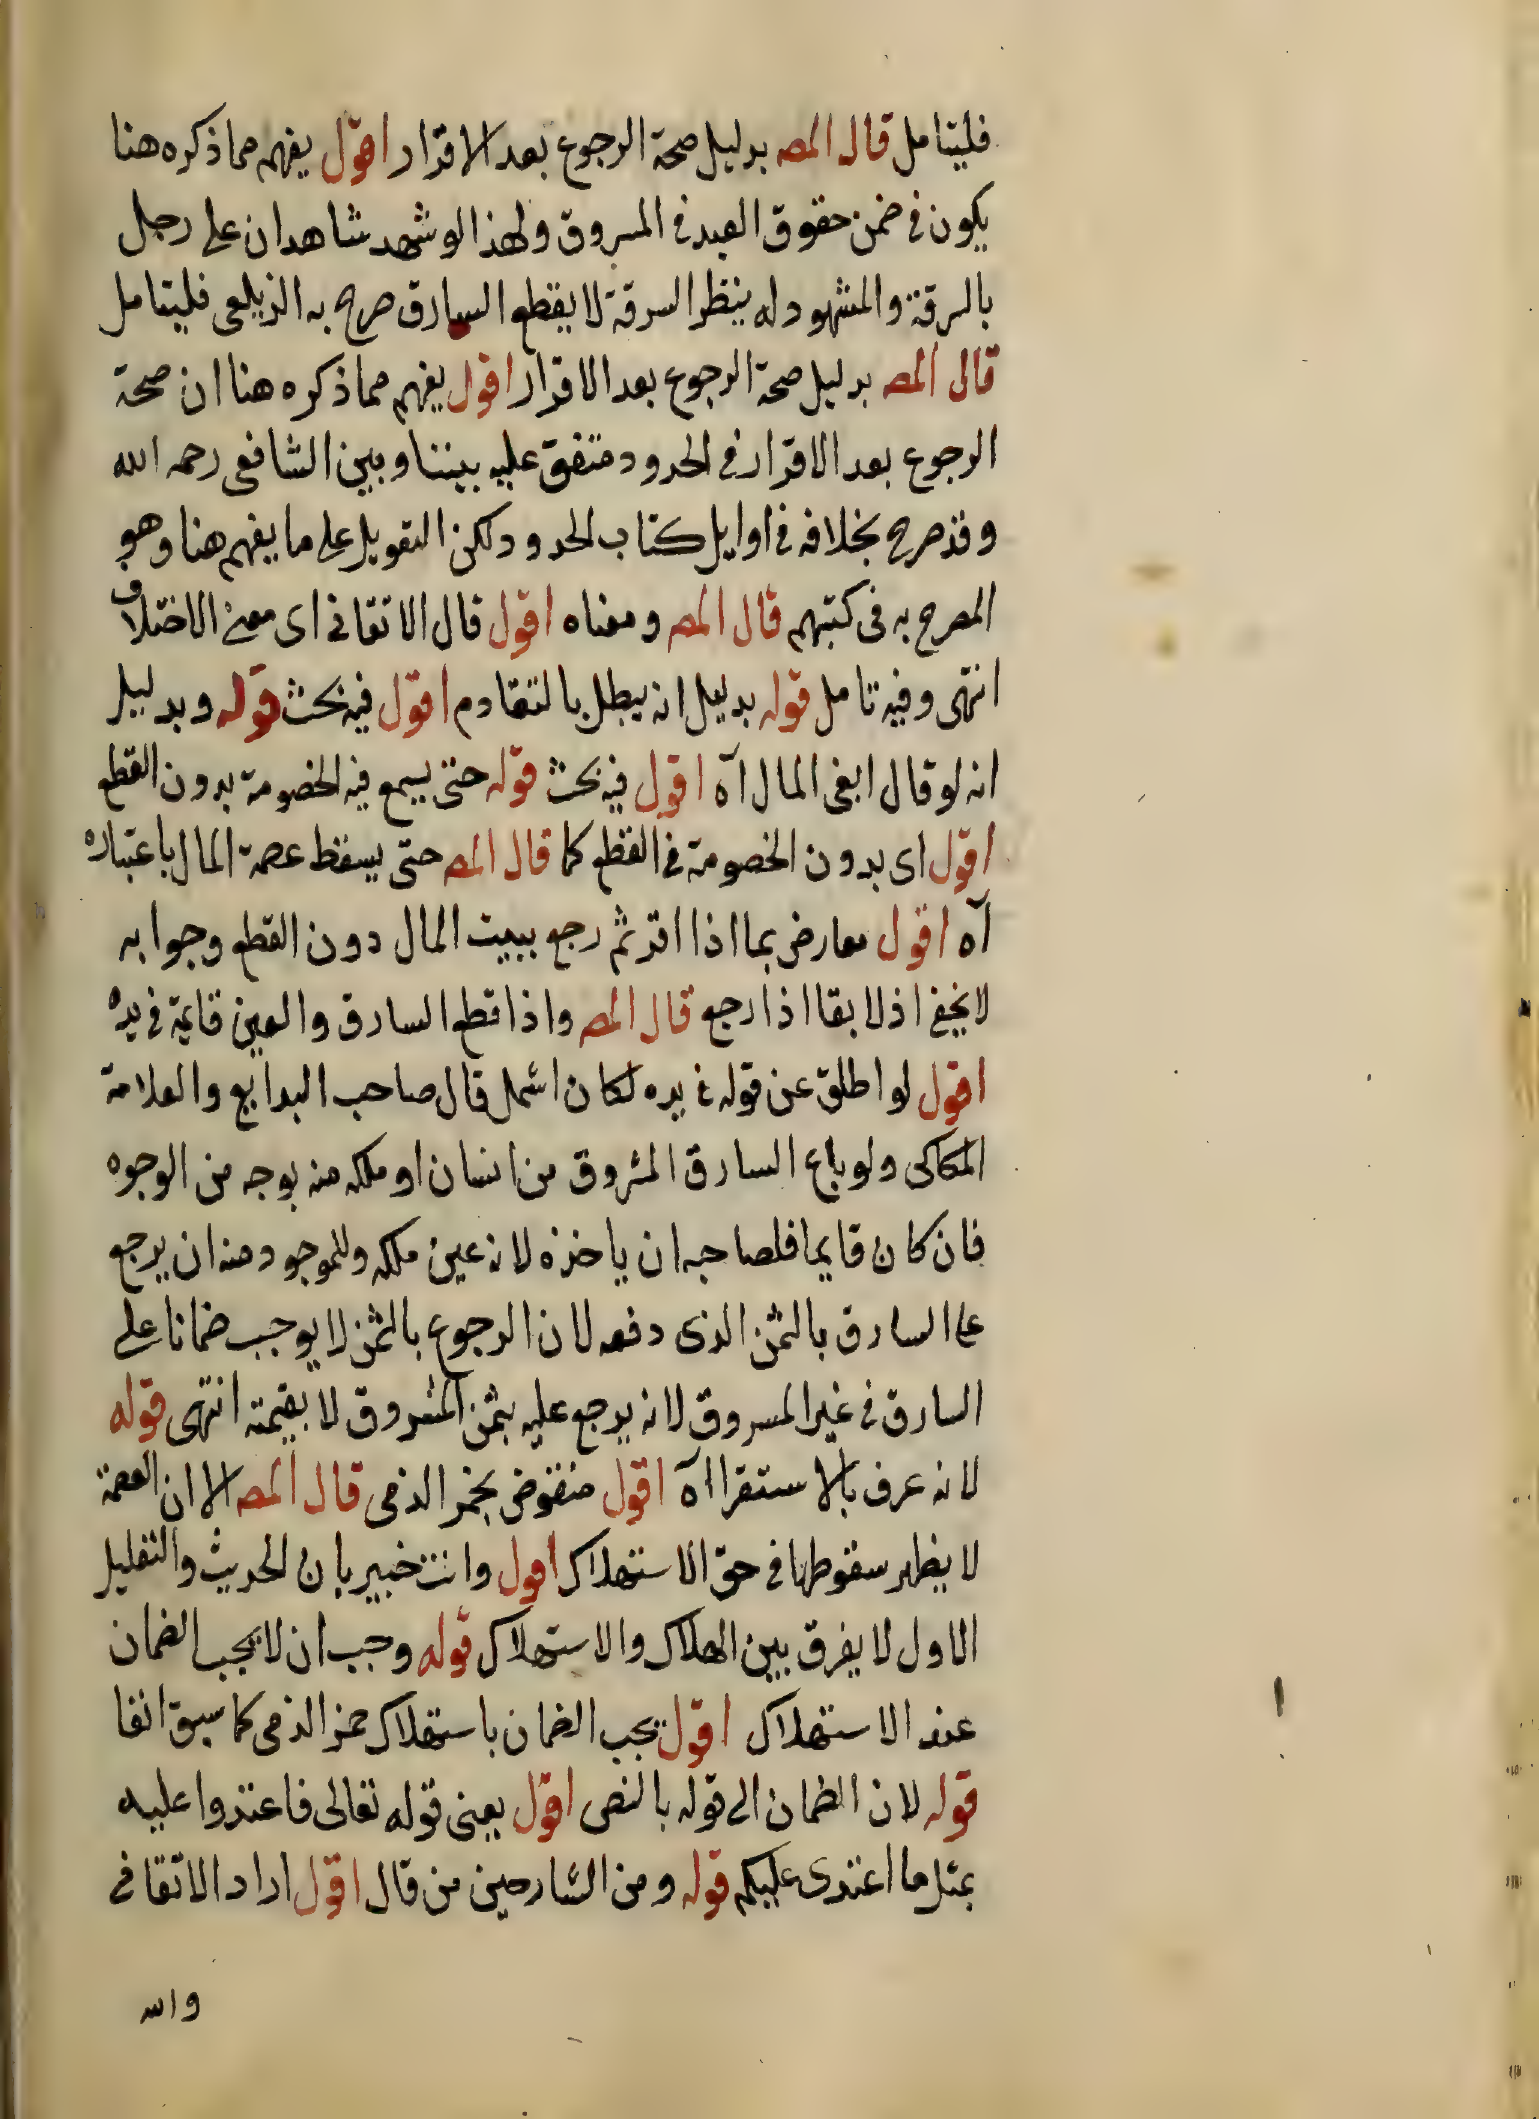 فليتامل قال المصـ بدليل صحة الرجوع بعد الاقرار اقول يفهم مما ذكره هنا
يكون فى ضمن حقوق العبد فى المسروق ولهذا لو شهد شاهدان على رجل
بالسرقة والمشهود له ينظر السرقة لا يقطع السارق صرح به الزيلعى فليتامل
قال المصـ بدليل صحة الرجوع بعد الاقرار اقول يفهم مما ذكره هنا ان صحة
الرجوع بعد الاقرار فى الحدود متفق عليه بيننا وبين الشافعى رحمه الله
وقد صرح بخلافه فى اوايل كتاب الحدود ولكن التعويل على ما يفهم هنا وهو
المصرح به فى كتبهم قال المصـ ومعناه اقول قال الاتقانى اى معنى الاختلاف
انتهى وفيه تامل قوله بدليل انه يبطل بالتقادم اقول فيه بحث قوله وبدليل
انه لو قال ابغى المال آه اقول فيه بحث قوله حتى يسمع فيه الخصومة بدون القطع
اقول اى بدون الخصومة فى القطع كما قال المصـ حتى يسقط عصمة المال باعتباره
آه اقول معارض بما اذا اقر ثم رجع يبيت المال دون القطع وجوابه
لا يخفى اذ لا بقا اذا رجع قال المصـ واذا قطع السارق والعين قايمة فى يده
اقول لو اطلق عن قوله فى يده لكان اشمل قال صاحب البدايع والعلامة
الكاكى ولو باع السارق المسروق من انسان او ملكه منه بوجه من الوجوه
فان كان قايما فلصاحبه ان ياخذه لانه عين ملكه وللموجود منه ان يرجع
على السارق بالثمن الذى دفعه لان الرجوع بالثمن لا يوجب ضمانا على
السارق فى غير المسروق لانه يرجع عليه بثمن المسروق لا بقيمته انتهى قوله
لانه عرف بالاستقرا آه اقول منقوض بخمر الذمى قال المصـ الا ان العصمة
لا يظهر سقوطها فى حق الاستهلاك اقول وانت خبير بان الحديث والتعليل
الاول لا يفرق بين الهلاك والاستهلاك قوله وجب ان لا يجب الضمان
عند الاستهلاك اقول يجب الضمان باستهلاك خمر الذمى كما سبق انفا
قوله لان الضمان الى قوله بالنص اقول يعنى قوله تعالى فاعتدوا عليه
بمثل ما اعتدى عليكم قوله ومن الشارحين من قال اقول اراد الاتقانى